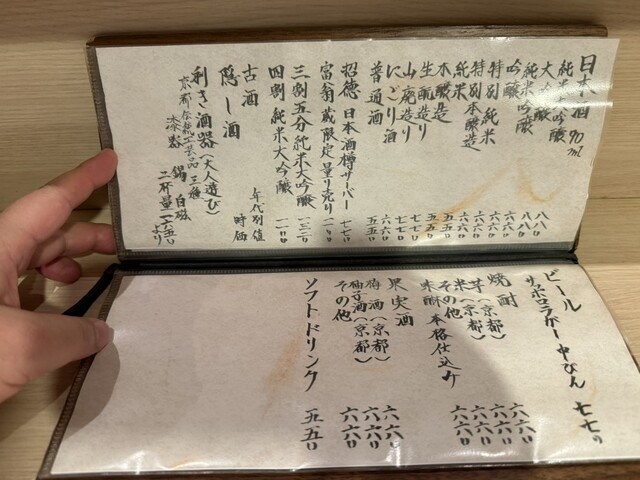 日本酒 90ml
純米大吟醸 八八〇
大吟醸 八八〇
純米吟醸 八八〇
吟醸 六六〇
特別純米 六六〇
特別本醸造 六六〇
純米 六六〇
本醸造 五五〇
生酛造り 五五〇
山廃造り 七七〇
にごり酒 七七〇
普通酒 五五〇
招徳 日本酒樽サーバー 七七〇
富翁 蔵限定量り売り 一一〇〇
三割五分 純米大吟醸 一三二〇
四割 純米大吟醸 一一〇〇
古酒 年代別値
隠し酒 時価
利き酒器(大人遊び)
京都伝統工芸品 三種
漆器 錫 白磁
二杯量 一六五〇より
ビール
サッポロラガー中びん 七七〇
焼酎
芋(京都) 六六〇
米(京都) 六六〇
その他 六六〇
本格仕込み 六六〇
果実酒
梅酒(京都) 六六〇
柚子酒(京都) 六六〇
その他 六六〇
ソフトドリンク 五五〇